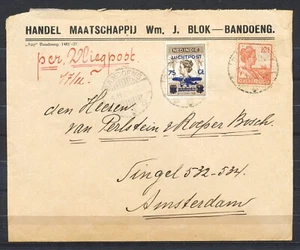 HANDEL MAATSCHAPPIJ Wm. J. BLOK—BANDOENG.
per. Vliegpost.
NED·INDIE
LUCHTPOST
75 Ct.
den Heeren.
van Perlstein & Roeper Bosch.
Singel 532-534.
Amsterdam